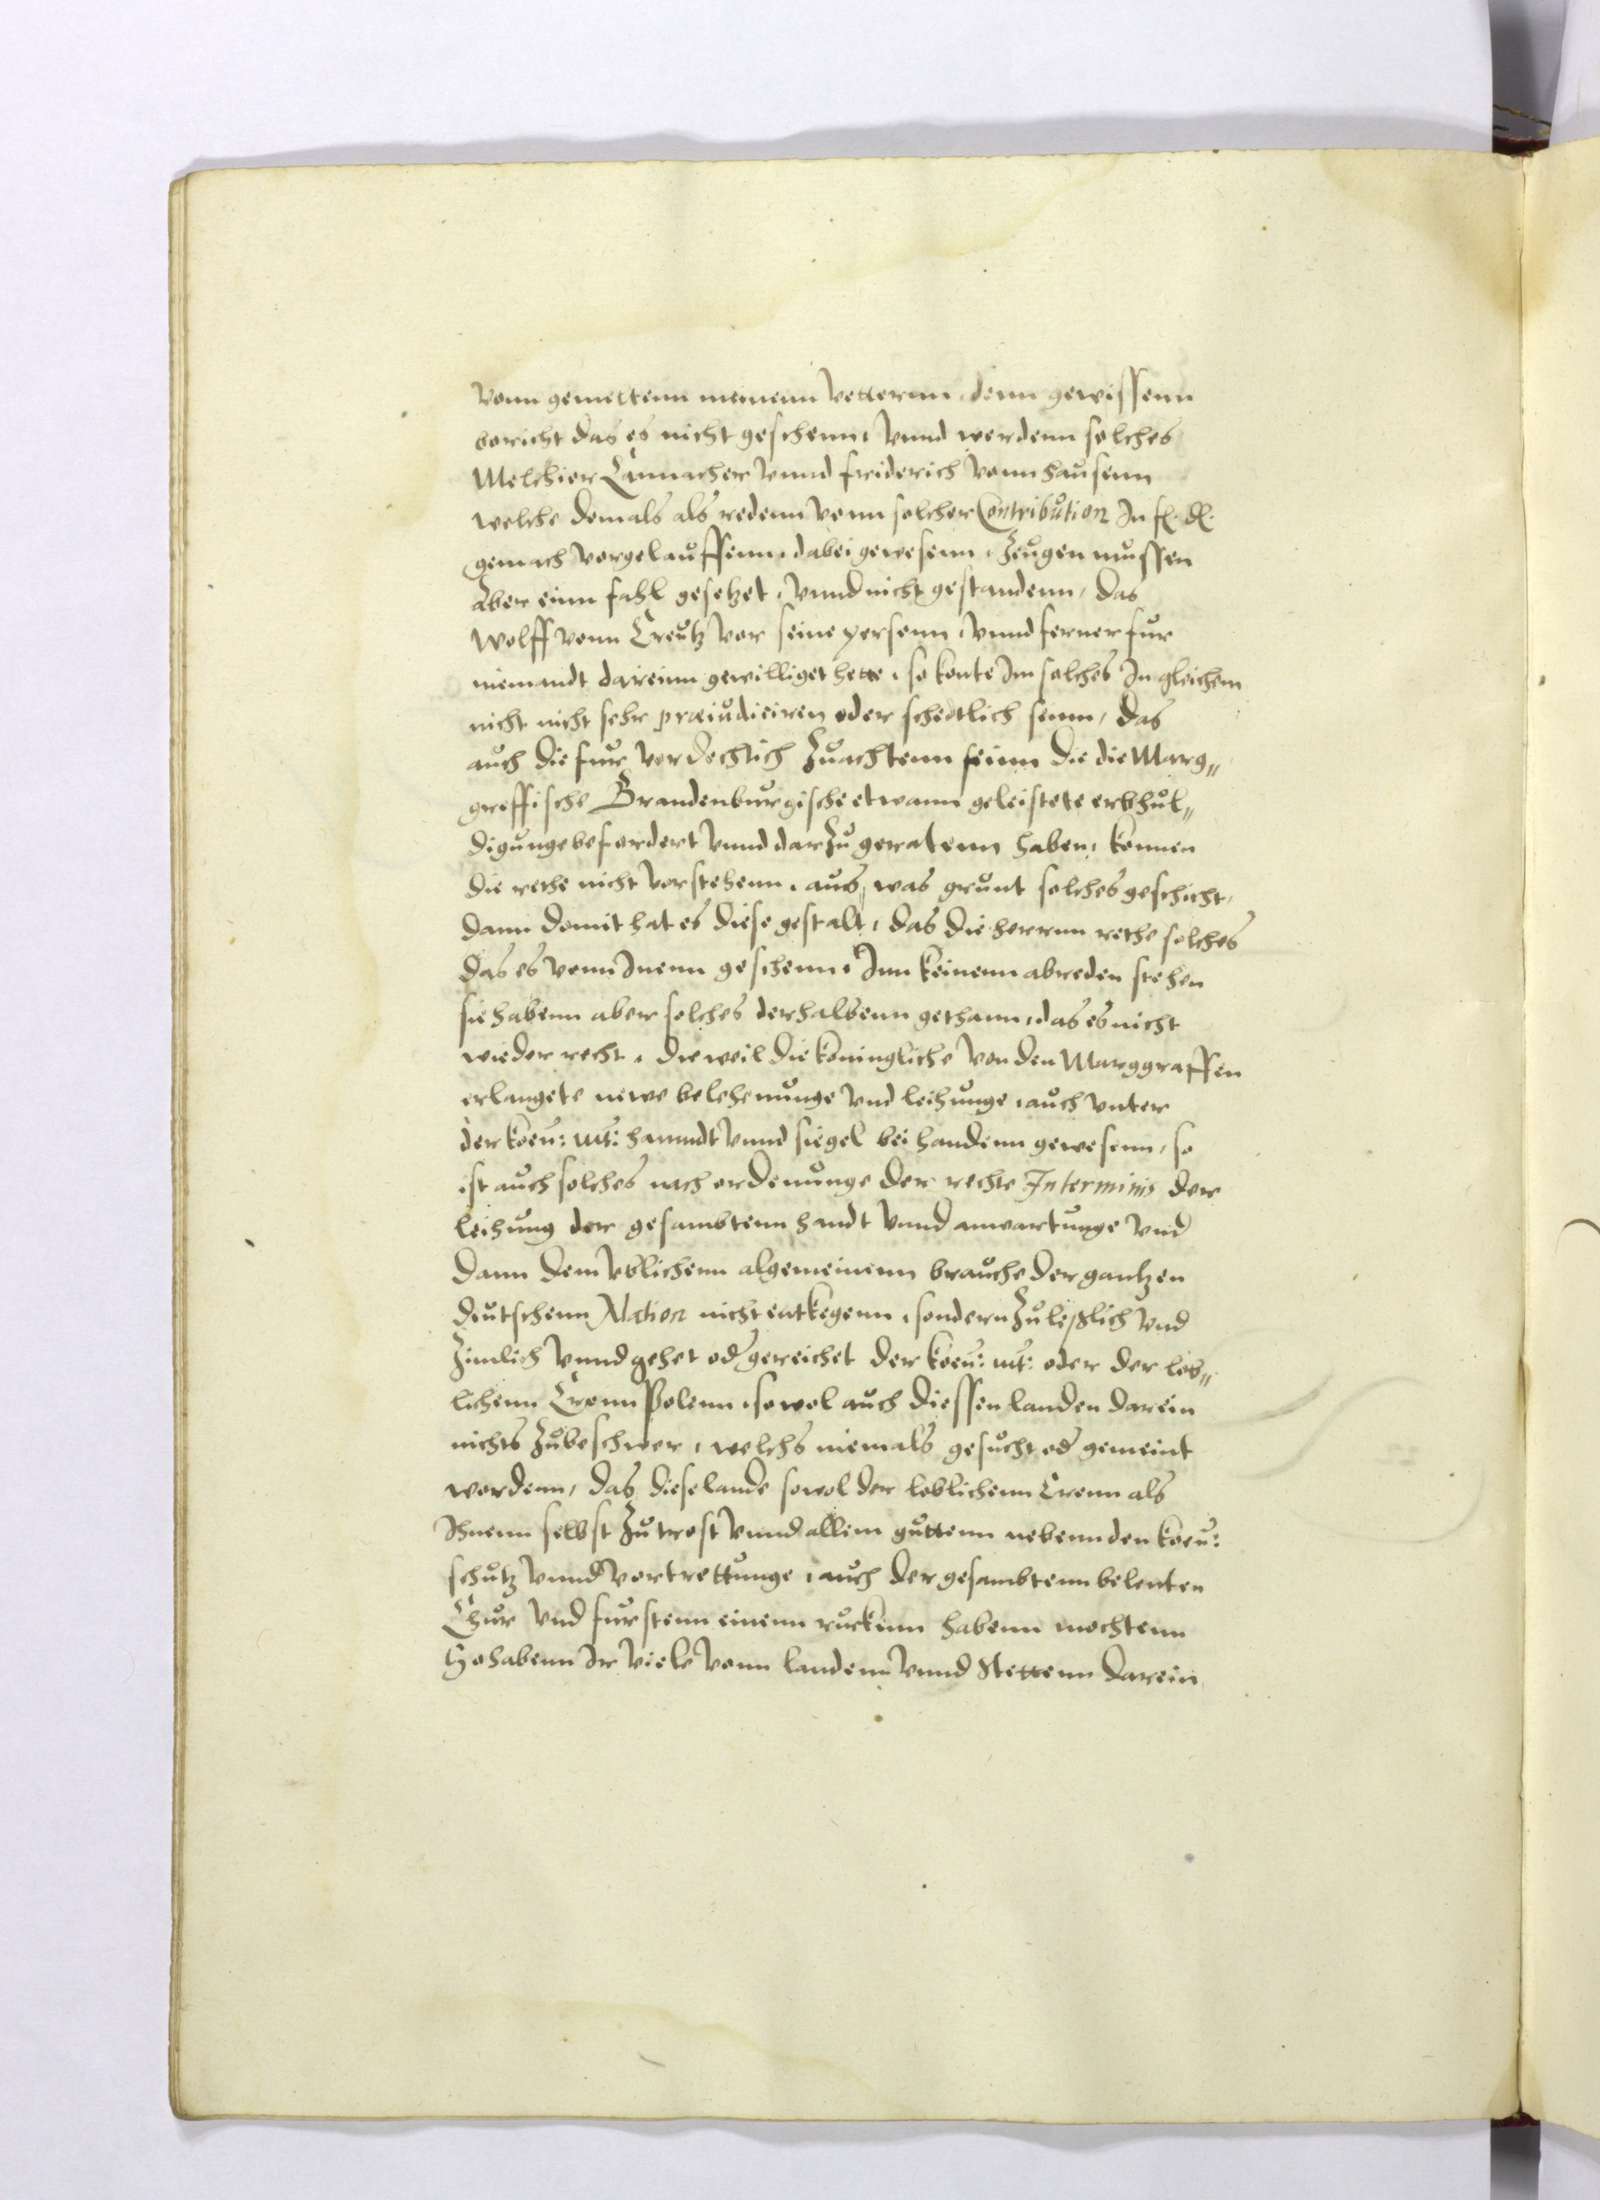 vonn gemeltenn meinenn Vetternn, denn gewissenn
bericht das es nicht geschenn, Vnnd werdenn solches
Melchior Vnnd friderich Vonn hausenn
welche domals als redenn vonn solcher Contribution In fl. dl.
gemach vorgelauffenn, dabei gewesenn, Zeugen mussen
Aber einn fahl gesetzet, Vnnd nicht gestandenn, das
Wolff vonn Creutz vor seine personn, Vnnd ferner fur
niemandt dareinn gewilliget hette, so konte Im solches In gleichem
nicht nicht sehr præiudiciren oder schedtlich seinn, das
auch die fur vordechtich Zuachtenn seinn die die Marg„
greffische Brandenburgische etwann geleistete erbhul„
digunge befordert Vnnd darzu geratenn haben, konnen
die rethe nicht vorstehenn, aus was grunt solches geschicht,
dann domit hat es diese gestalt, das die herrnn rethe solches
das es vonn Inenn geschenn, Inn keinenn abreden stehen
sie habenn aber solches derhalbenn gethann, das es nicht
wieder recht, dieweil die koningliche von den Marggraffen
erlangete newe belehenunge Vnd leihunge, auch Vnter
der koen: mt: hanndt Vnnd siegel bei handenn gewesenn, so
ist auch solches nach ordenunge der rechte In terminis der
leihung der gesambtenn handt Vnnd anwartunge Vnd
dann dem Vblichenn algemeinenn brauche der gantzen
deutschenn Nation nicht entkegenn, sondern Zuleßlich Vnd
Zimlich Vnnd gehet od gereichet der koen: mt: oder der lob„
lichenn Cronn Polenn, sowol auch diessen landen darein
nichts Zubeschwer, welchs niemals gesucht od gemeint
wordenn, das diese lande sowol der loblichenn Cronn als
Ihnenn selbst Zu trost Vnnd allem guttenn nebenn den koen:
schutz Vnnd vortrettunge, auch der gesambtenn belenten
Chur Vnd furstenn einenn ruckenn habenn mochtenn
So habenn Ir viele vonn landenn Vnnd Stettenn darein